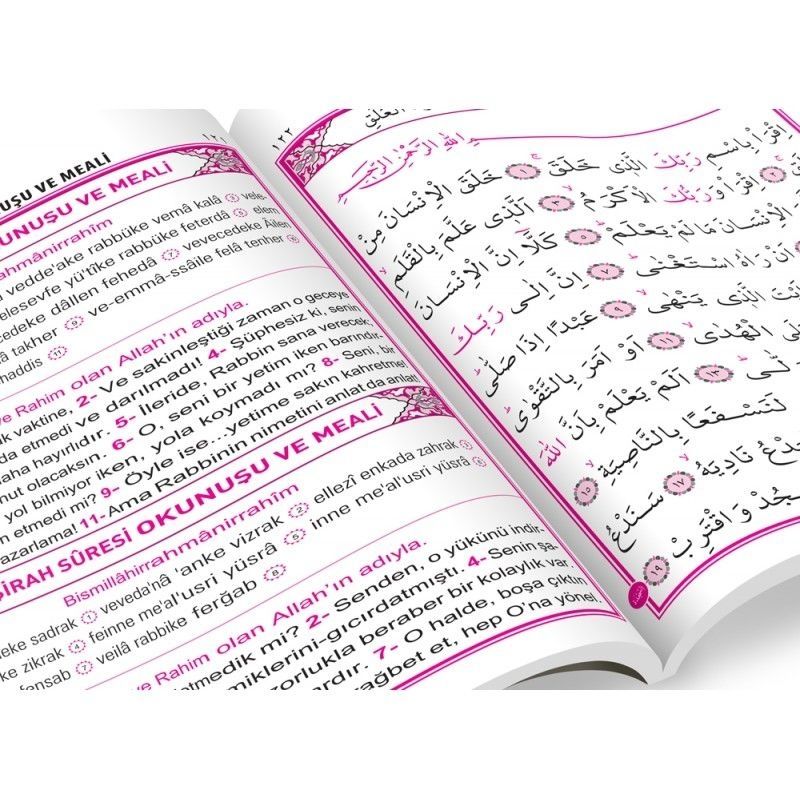 ١٢١
UŞU VE MEALİ
UNUŞU VE MEALİ
ahmânirrahîm
vedde'ake rabbüke vemâ kalâ ③ vele-
elesevfe yü'tîke rabbüke feterdâ ⑤ elem
cedeke dâllen fehedâ ⑦ vevecedeke Âilen
takher ⑨ ve-emmâ-ssâile felâ tenher ⑩
haddis ⑪
ve Rahim olan Allah'ın adıyla.
k vaktine, 2- Ve sakinleştiği zaman o geceye
da etmedi ve darılmadı! 4- Şüphesiz ki, senin
aha hayırlıdır. 5- İleride, Rabbin sana verecek;
nut olacaksın. 6- O, seni bir yetim iken barındır-
yol bilmiyor iken, yola koymadı mı? 8- Seni, bir
n etmedi mi? 9- Öyle ise...yetime sakın kahretme!
azarlama! 11- Ama Rabbinin nimetini anlat da anlat!
ŞİRAH SÛRESİ OKUNUŞU VE MEALİ
Bismillâhirrahmânirrahîm
eke sadrak ① veveda'nâ 'anke vizrak ② ellezî enkada zahrak ③
ke zikrak ④ feinne me'al'usri yüsrâ ⑤ inne me'al'usri yüsrâ ⑥
fensab ⑦ veilâ rabbike ferğab ⑧
ve Rahim olan Allah'ın adıyla.
etmedik mi? 2- Senden, o yükünü indir-
miklerini-gıcırdatmıştı. 4- Senin şa-
zorlukla beraber bir kolaylık var.
ardır. 7- O halde, boşa çıktın
ağbet et, hep O'na yönel.
١٢٢
الْعَلَقِ
اللّٰهِ الرَّحْمٰنِ الرَّحِيمِ
اِقْرَأْ بِاسْمِ رَبِّكَ الَّذِى خَلَقَ ﴿١﴾ خَلَقَ الْاِنْسَانَ مِنْ
﴿٢﴾ اِقْرَأْ وَرَبُّكَ الْاَكْرَمُ ﴿٣﴾ اَلَّذِى عَلَّمَ بِالْقَلَمِ
الْاِنْسَانَ مَا لَمْ يَعْلَمْ ﴿٥﴾ كَلَّا اِنَّ الْاِنْسَانَ
اَنْ رَاٰهُ اسْتَغْنٰى ﴿٧﴾ اِنَّ اِلٰى رَبِّكَ
الَّذِى يَنْهٰى ﴿٩﴾ عَبْدًا اِذَا صَلّٰى
الْهُدٰى ﴿١١﴾ اَوْ اَمَرَ بِالتَّقْوٰى
لّٰى ﴿١٣﴾ اَلَمْ يَعْلَمْ بِاَنَّ اللّٰهَ
لَنَسْفَعًا بِالنَّاصِيَةِ ﴿١٥﴾
نَادِيَهُ ﴿١٧﴾ سَنَدْعُ
وَاقْتَرِبْ ﴿١٩﴾